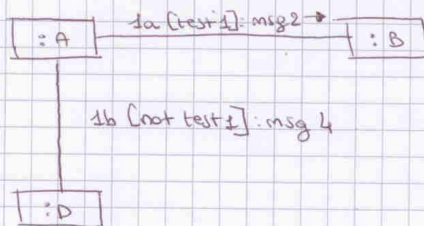 1a [test1]: msg2 →
: A
: B
1b [not test1]: msg 4
: D